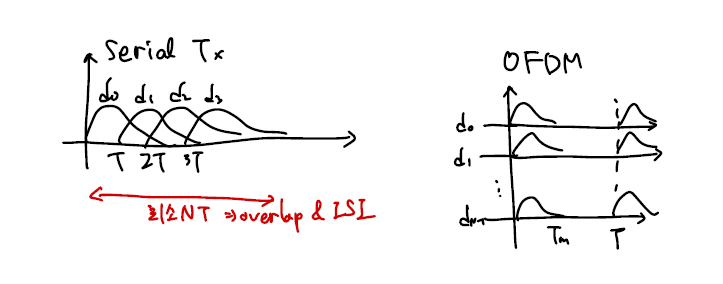 Serial Tx
d0 d1 d2 d3
T 2T 3T
최소 NT ⇒ overlap & ISI
OFDM
d0
d1
⋮
dN-1
Tm T